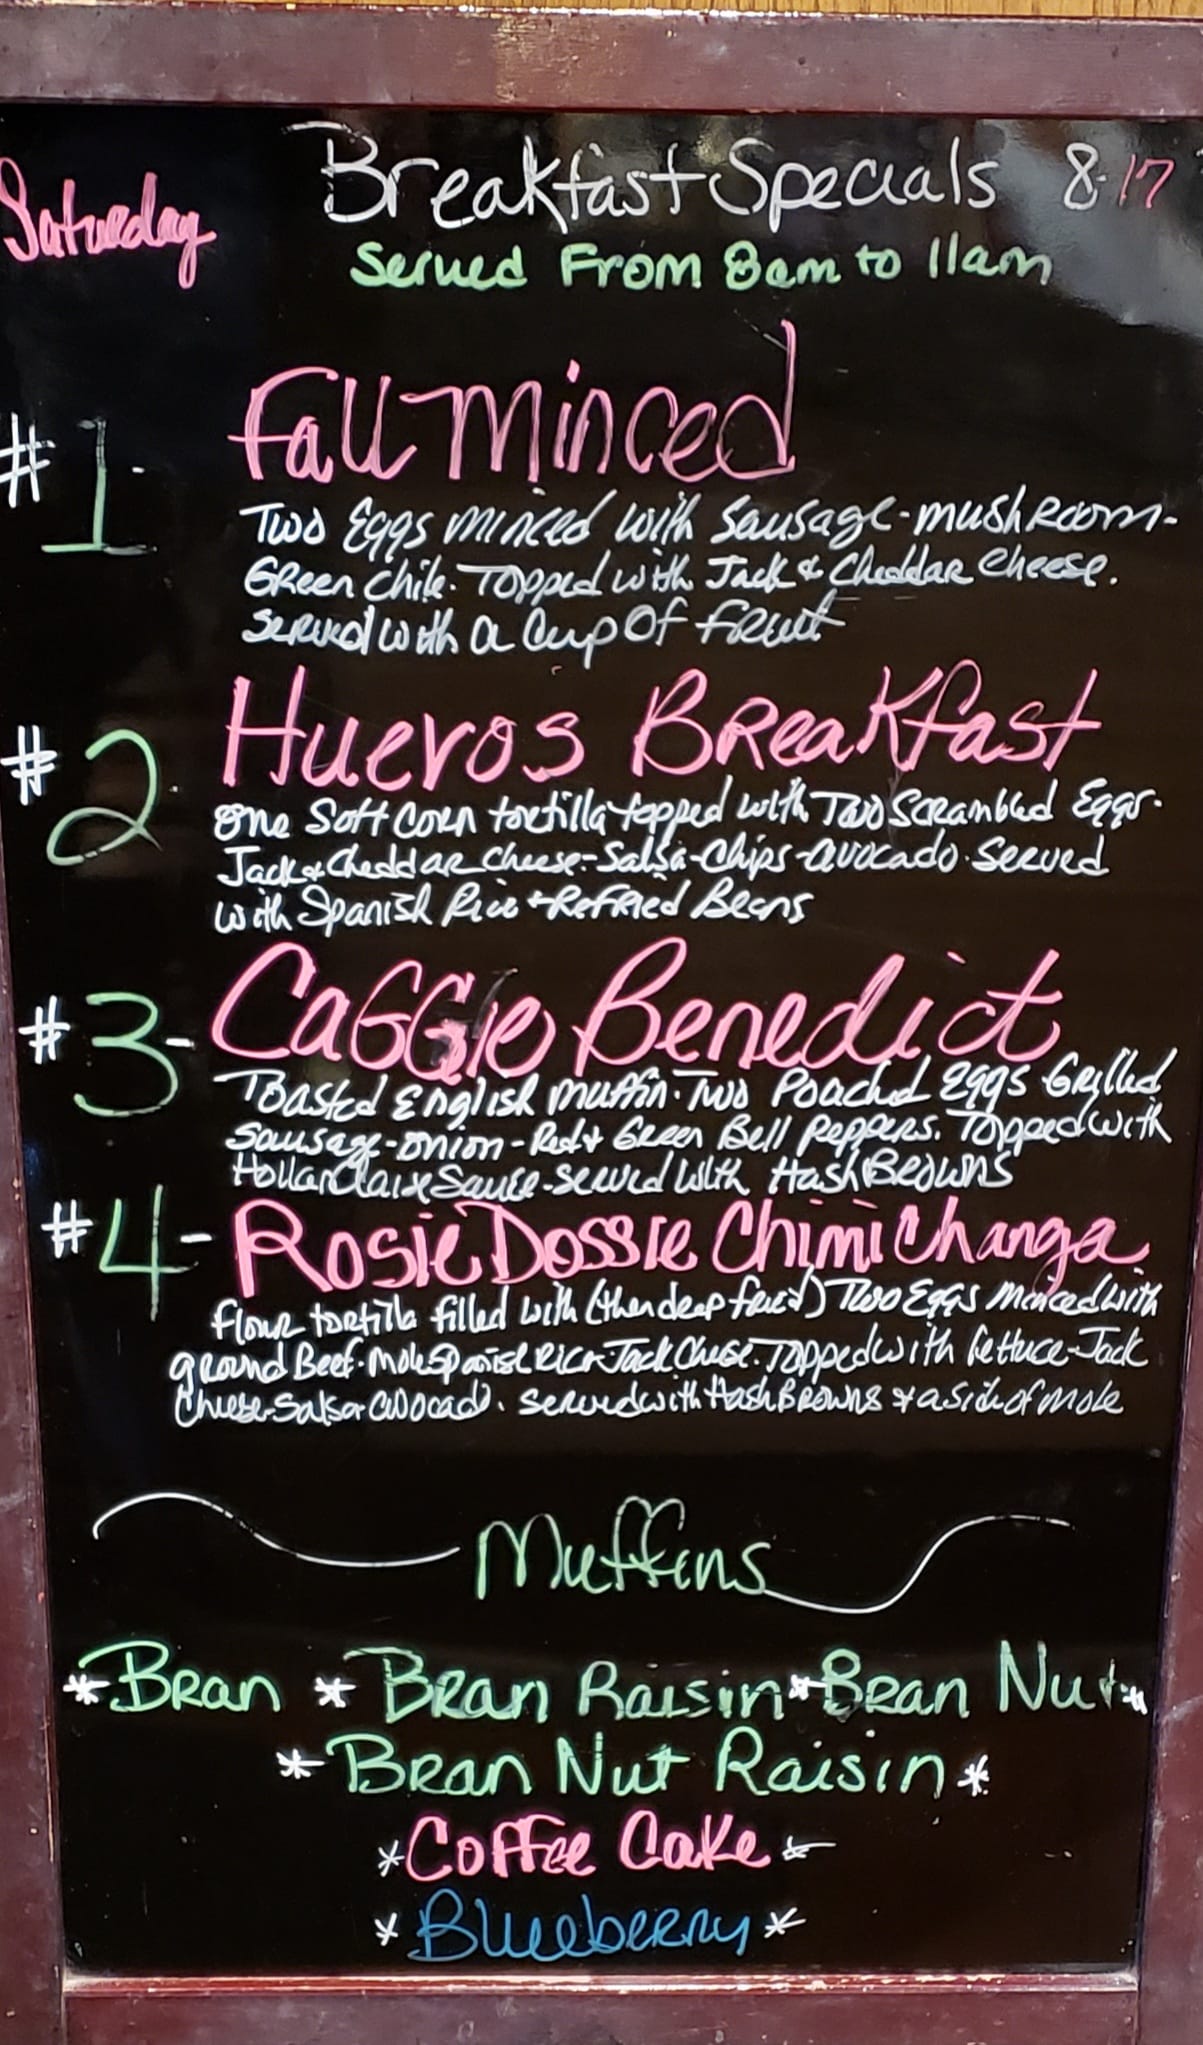 Saturday Breakfast Specials 8-17
Served From 8am to 11am
#1- Fall Minced
Two Eggs minced with Sausage-mushroom-
Green Chile. Topped with Jack & Cheddar Cheese.
Served with a Cup Of fruit
#2. Huevos Breakfast
One Soft Corn tortilla topped with Two Scrambled Eggs.
Jack & Cheddar Cheese-Salsa-Chips-avocado. Served
with Spanish Rice & Refried Beans
#3- Caggie Benedict
Toasted English muffin. Two Poached Eggs Grilled
Sausage-onion-Red & Green Bell Peppers. Topped with
Hollandaise Sauce-served with Hash Browns
#4- Rosie Dossie Chimi Changa
flour tortilla filled with (then deep fried) Two Eggs minced with
ground Beef. Mole Spanish Rice & Jack Cheese. Topped with Lettuce-Jack
Cheese-Salsa-avocado. served with Hash Browns & a side of mole
Muffins
*Bran * Bran Raisin * Bran Nut *
* Bran Nut Raisin *
* Coffee Cake *
* Blueberry *